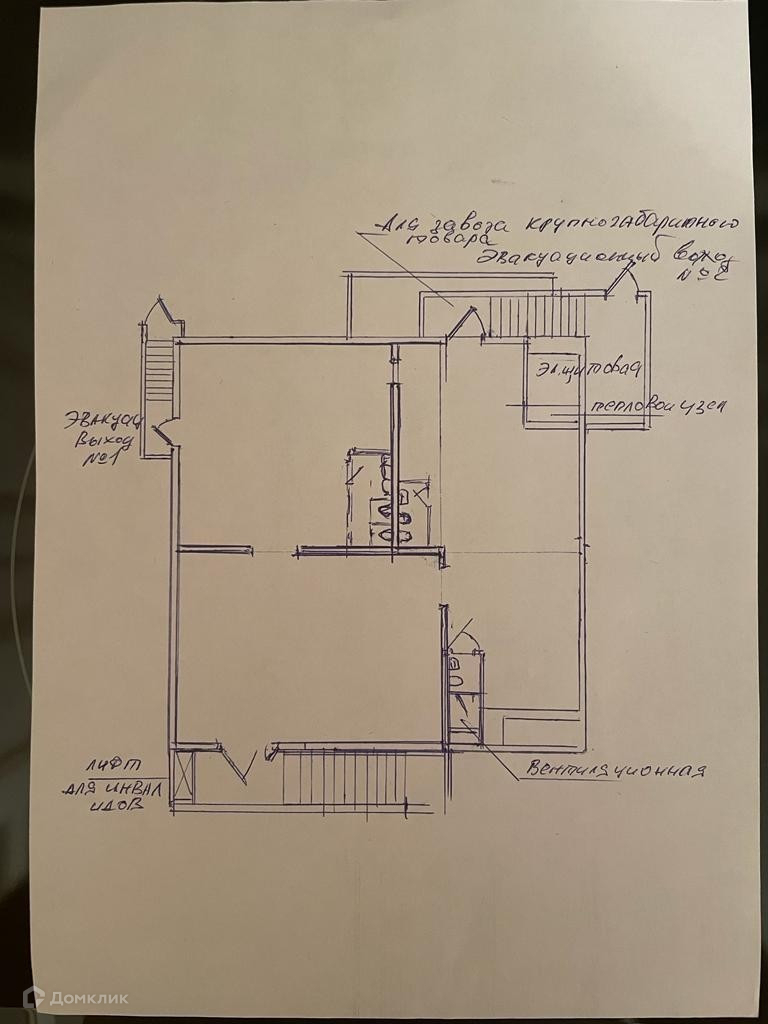 Для завоза крупногабаритного
товара
Эвакуационный выход
№2
эл.щитовая
тепловой узел
Эвакуац
выход
№1
лифт
для инвал
идов
Вентиляционная
Домклик